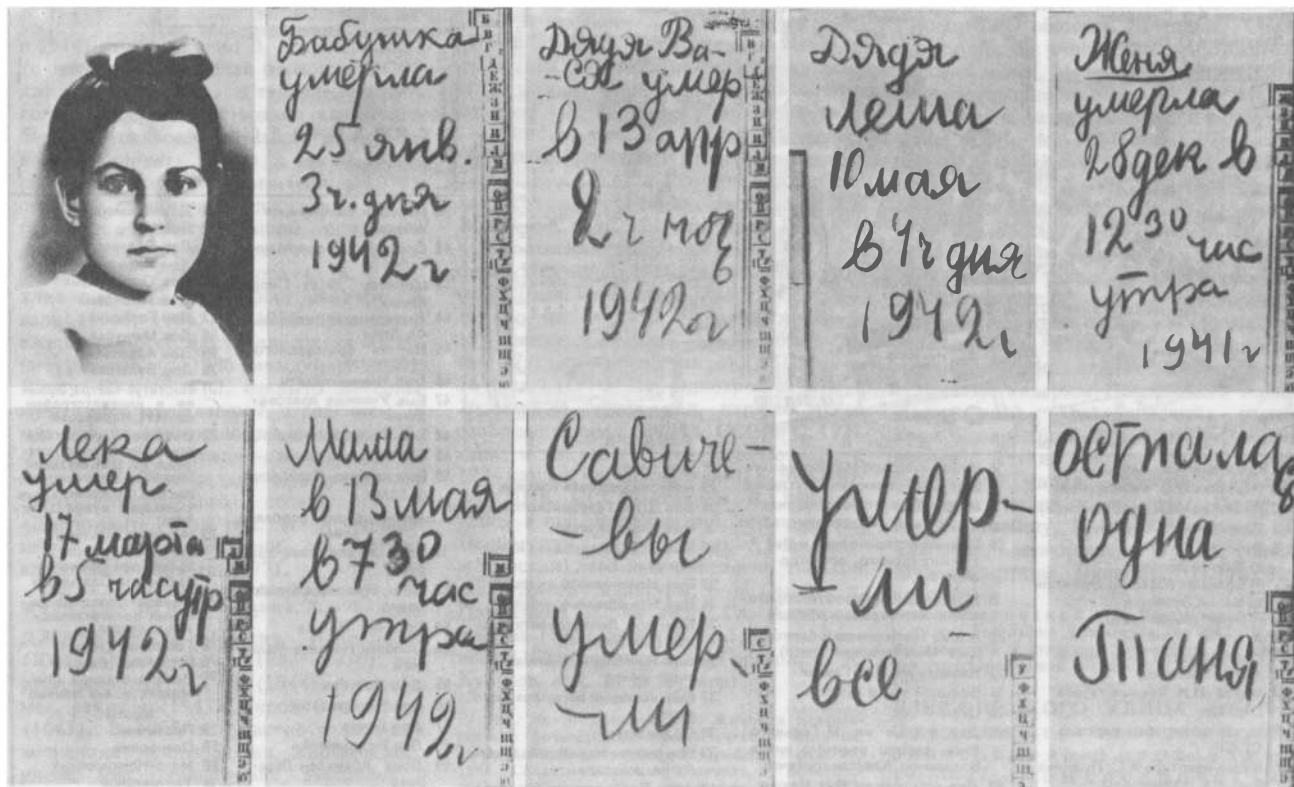 Бабушка
умерла
25 янв.
3 ч. дня
1942 г
Дядя Ва-
-ся умер
в 13 апр
2 ч ноч
1942 г
Дядя
Леша
10 мая
в 4 ч дня
1942 г
Женя
умерла
28 дек в
12 30 час
утра
1941 г
Лека
умер
17 марта
в 5 час утр
1942 г
Мама
в 13 мая
в 7 30
час
утра
1942 г
Савиче-
-вы
умер
-ли
Умер-
-ли
все
осталась
одна
Таня